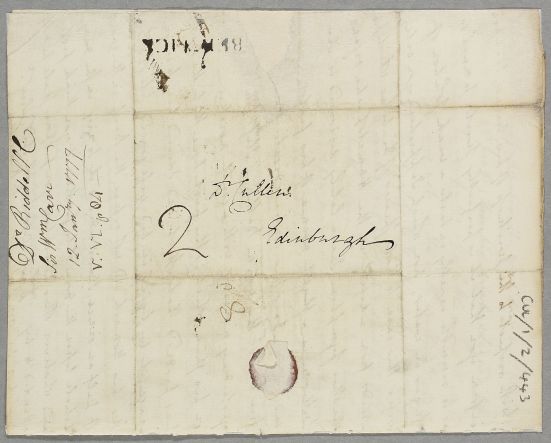 BERWICK
Dr Riddell
Sr Wm Carr
12 Jany 1777
V. VI. p 84
Dr. Cullen.
2
Edinburgh
Cul/1/2/443